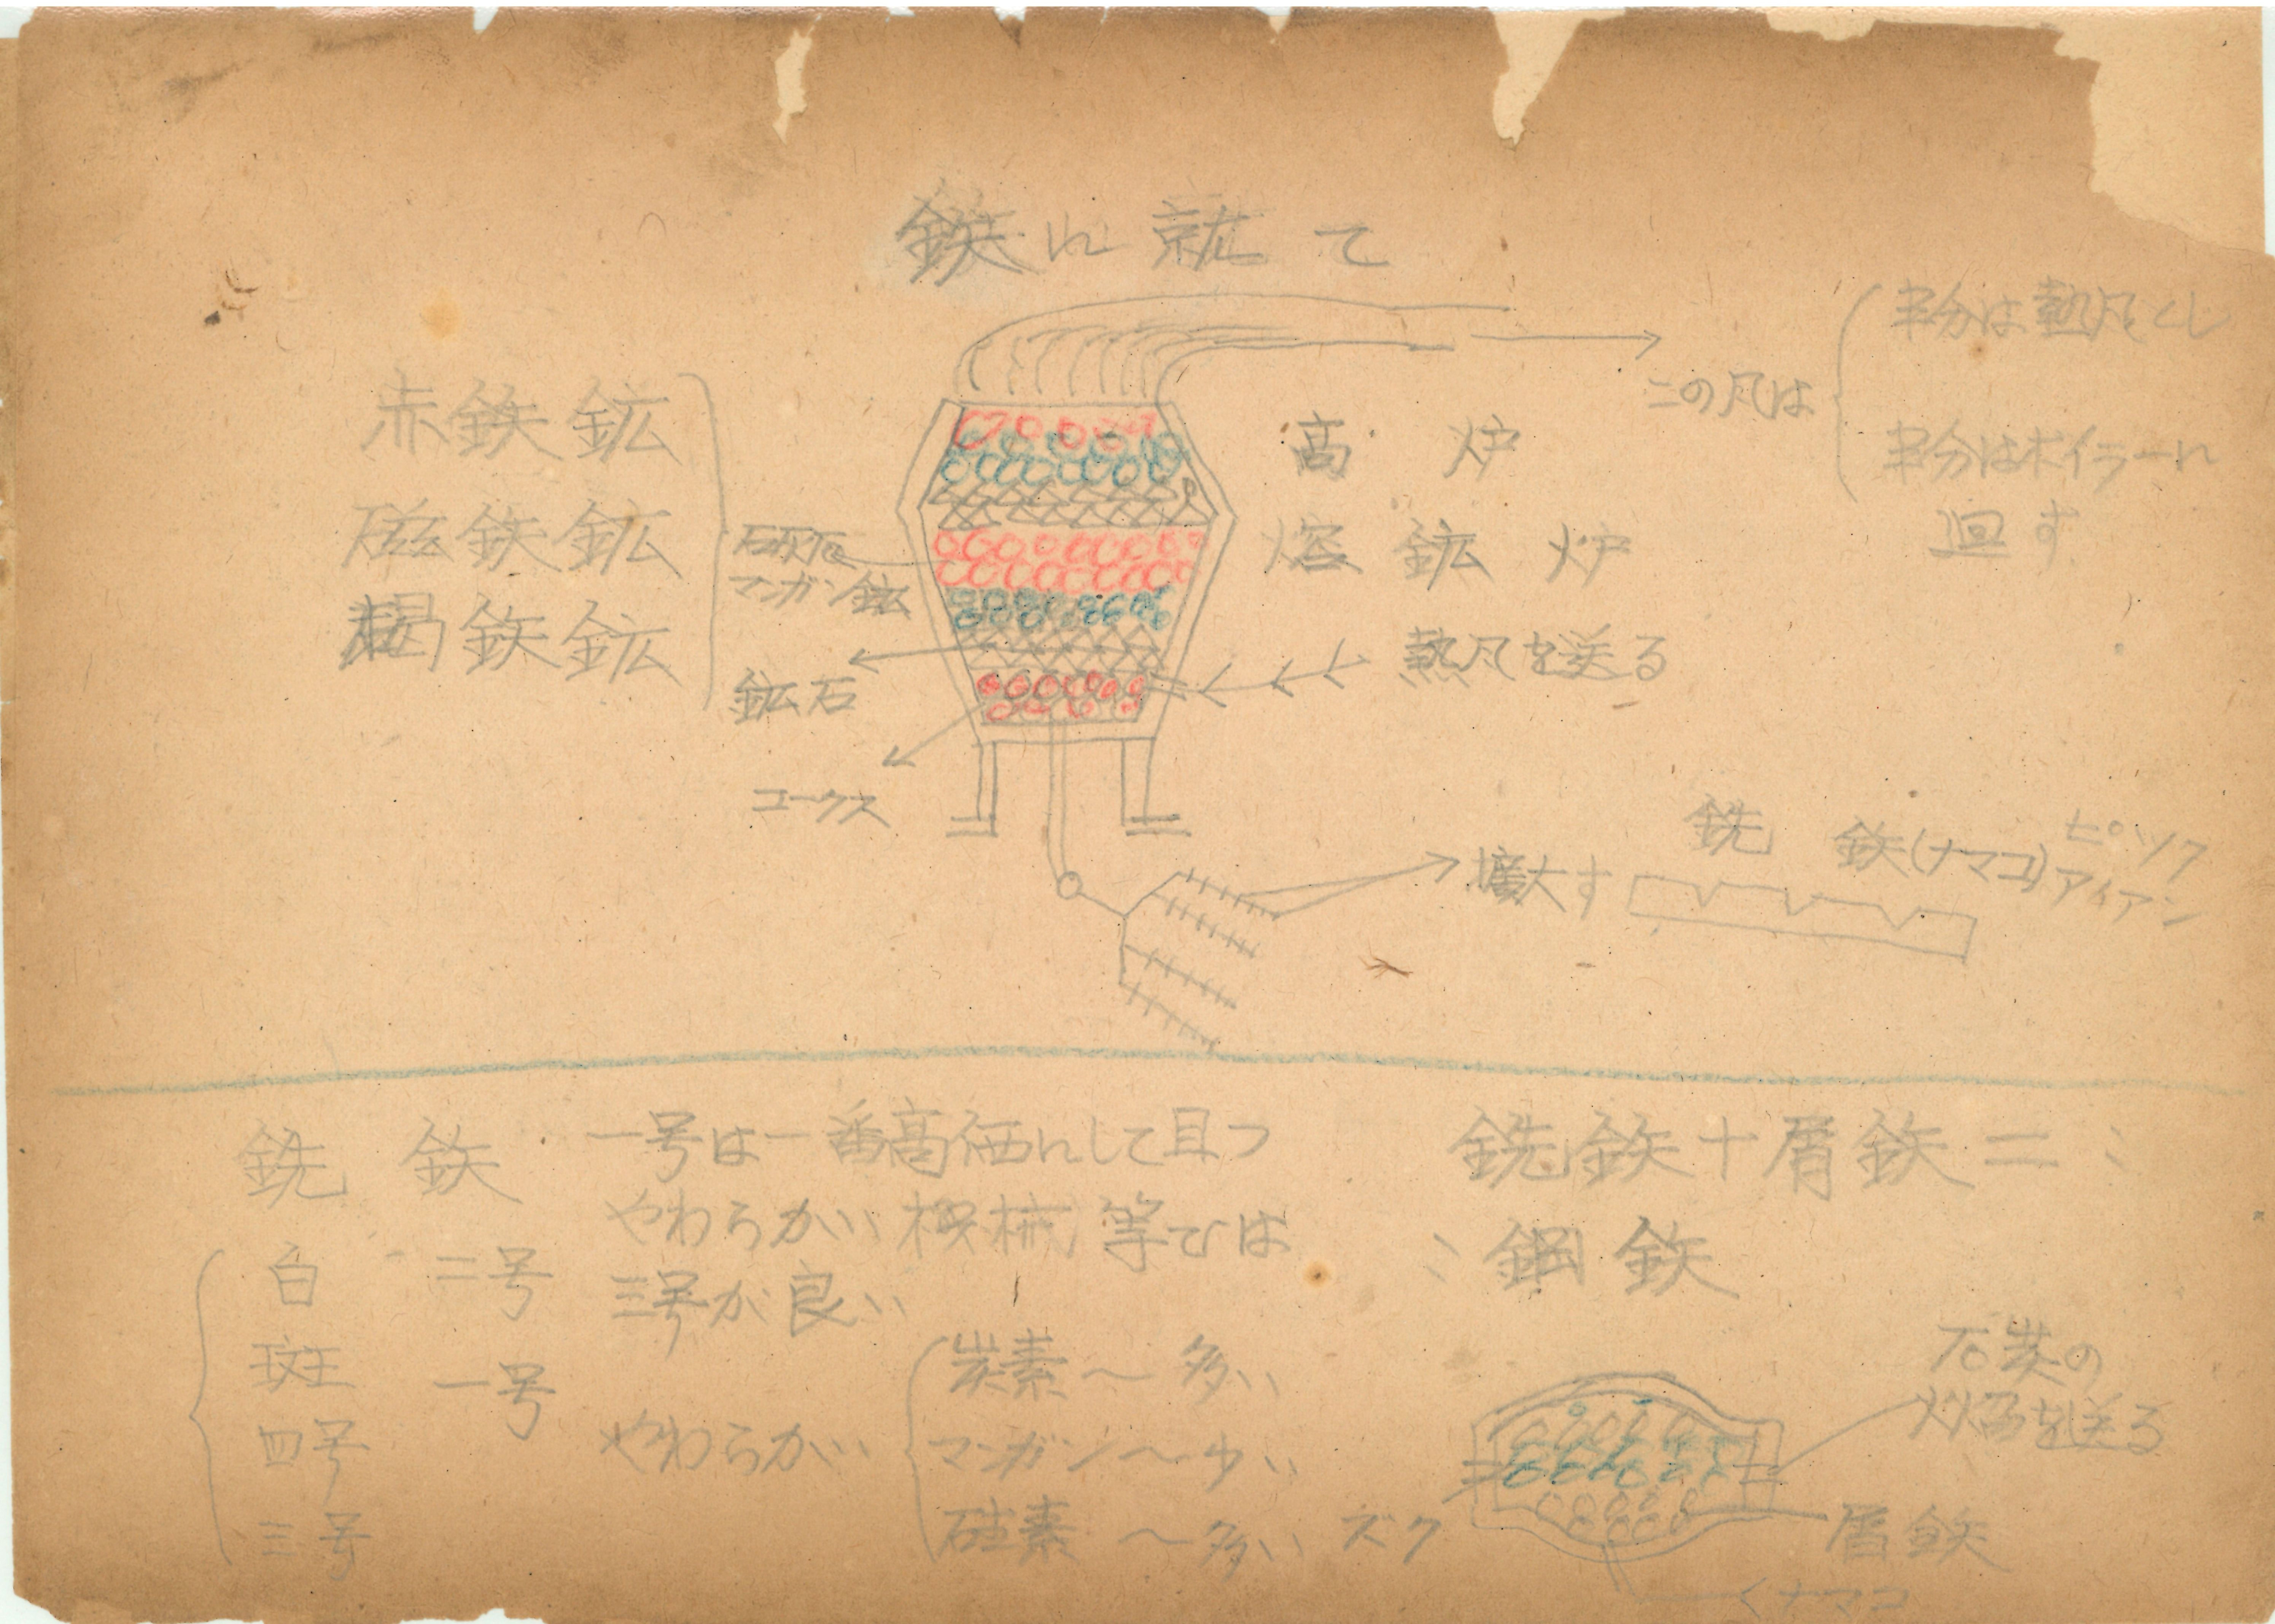 鉄に就て
赤鉄鉱
磁鉄鉱
褐鉄鉱
石灰石
マンガン鉱
鉱石
コークス
高炉
熔鉱炉
熱风を送る
この风は
半分は熱风とし
半分はボイラーに
廻す
擴大す
銑鉄(ナマコ)ピッツク
アイアン
銑鉄
白 二号
斑 一号
四号
三号
一号は一番高価にして且つ
やわらかい 機械等では
三号が良い
やわらかい
炭素～多い
マンガン～少い
硅素～多い ズク
銑鉄+屑鉄=
鋼鉄
石炭の
焔を送る
屑鉄
ナマコ